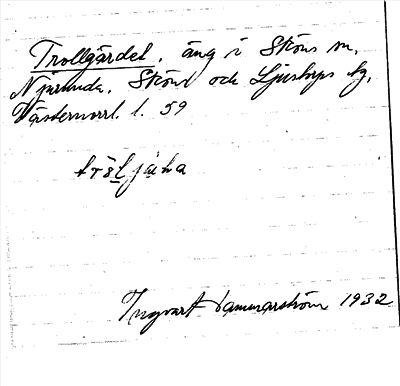 Trollgärdet, äng i Sköns sn,
Njurunda, Sköns och Ljustorps tg,
Västernorrl. l. 59
Ingvart Hammarström 1932